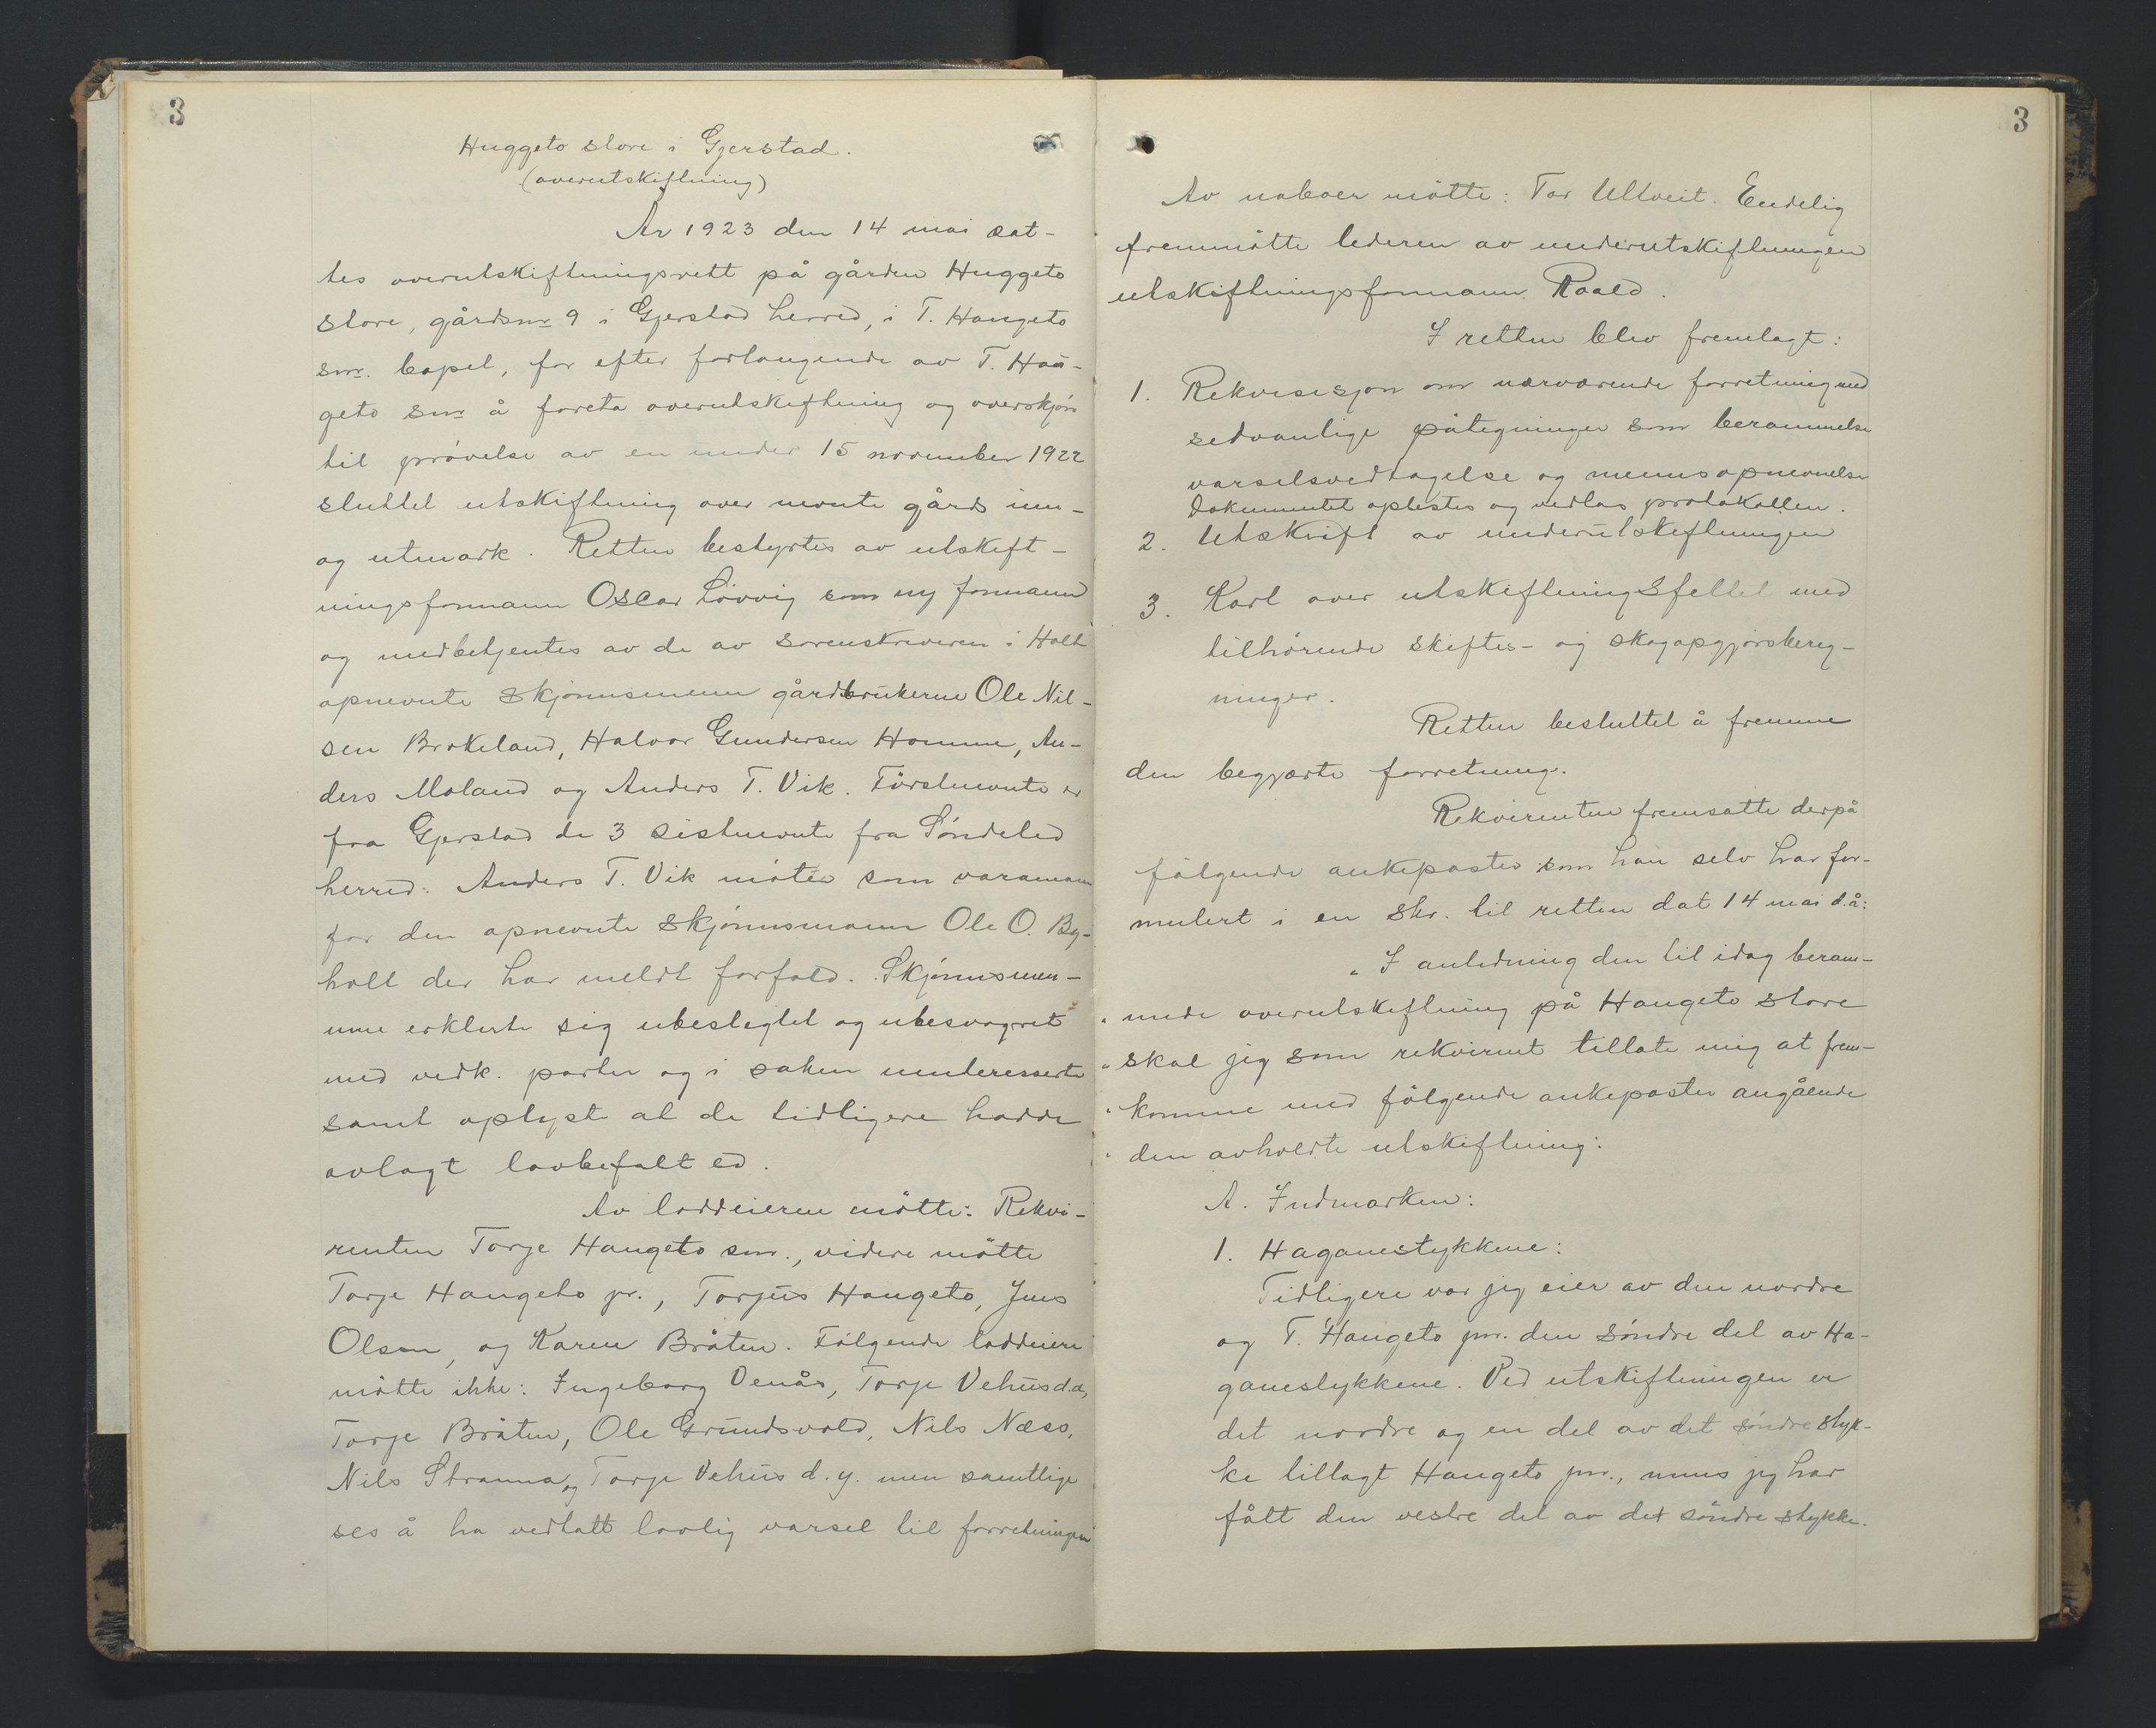 3
Huggeto store i Gjerstad.
(overutskiftning)
År 1923 den 14 mai sat-
tes overutskiftningsrett på gården Huggeto
store, gårdsnr 9 i Gjerstad herred, i T. Haugeto
snr. bopel, for efter forlangende av T. Hau-
geto snr å foreta overutskiftning og overskjön
til prövelse av en under 15 november 1922
sluttet utskiftning over nevnte gårds inn-
og utmark. Retten bestyrtes av utskift-
ningsformann Oscar Lövvig som ny formann
og medbetjentes av de av sorenskriveren i Holt
opnevnte skjönnsmenn gårdbrukerne Ole Nil-
sen Brokeland, Halvor Gundersen Homme, An-
ders Moland og Anders T. Vik. Förstnevnte er
fra Gjerstad de 3 sistnevnte fra Söndeled
herred. Anders T. Vik möter som varamann
for den opnevnte skjönnsmann Ole O. By-
holt der har meldt forfald. Skjönnsmen-
nene erklerte sig ubeslegtet og ubesvogret
med vedk. parter og i saken uinteresserte
samt oplyst at de tidligere hadde
avlagt lovbefalt ed.
Av loddeierne mötte: Rekvi-
renten Torje Haugeto snr., videre mötte
Torje Haugeto jr., Torjus Haugeto, Jens
Olsen, og Karen Bråten. Fölgende loddeiere
mötte ikke: Ingeborg Venås, Torje Vehus d.e,
Torje Bråten, Ole Grundsvold, Nils Næss,
Nils Stramna og Torje Vehus d.y. men samtlige
ses å ha vedtatt lovlig varsel til forretningen
3
Av naboer mötte: Tor Ulltveit. Endelig
fremmötte lederen av underutskiftningen
utskiftningsformann Roald.
I retten blev fremlagt:
1. Rekvisisjon om nærværende forretning med
sedvanlige påtegninger som berammelse
varselsvedtagelse og mennsopnevnelse
Dokumentet oplestes og vedlas protokollen.
2. Utskrift av underutskiftningen
3. Kart over utskiftningsfeltet med
tilhörende skiftes- og skogopgjörsbereg-
ninger.
Retten besluttet å fremme
den begjærte forretning.
Rekvirenten fremsatte derpå
fölgende ankeposter som han selv har for-
mulert i en skr. til retten dat 14 mai d.å:
"I anledning den til idag beram-
" mede overutskiftning på Haugeto store
" skal jeg som rekvirent tillate mig at frem-
" komme med fölgende ankeposter angående
" den avholdte utskiftning:
A. Indmarken:
1. Haganestykkene:
Tidligere var jeg eier av den nordre
og T. Haugeto jnr. den söndre del av Ha-
ganestykkene. Ved utskiftningen er
det nordre og en del av det söndre styk-
ke tillagt Haugeto jnr., mens jeg har
fått den vestre del av det söndre stykke.